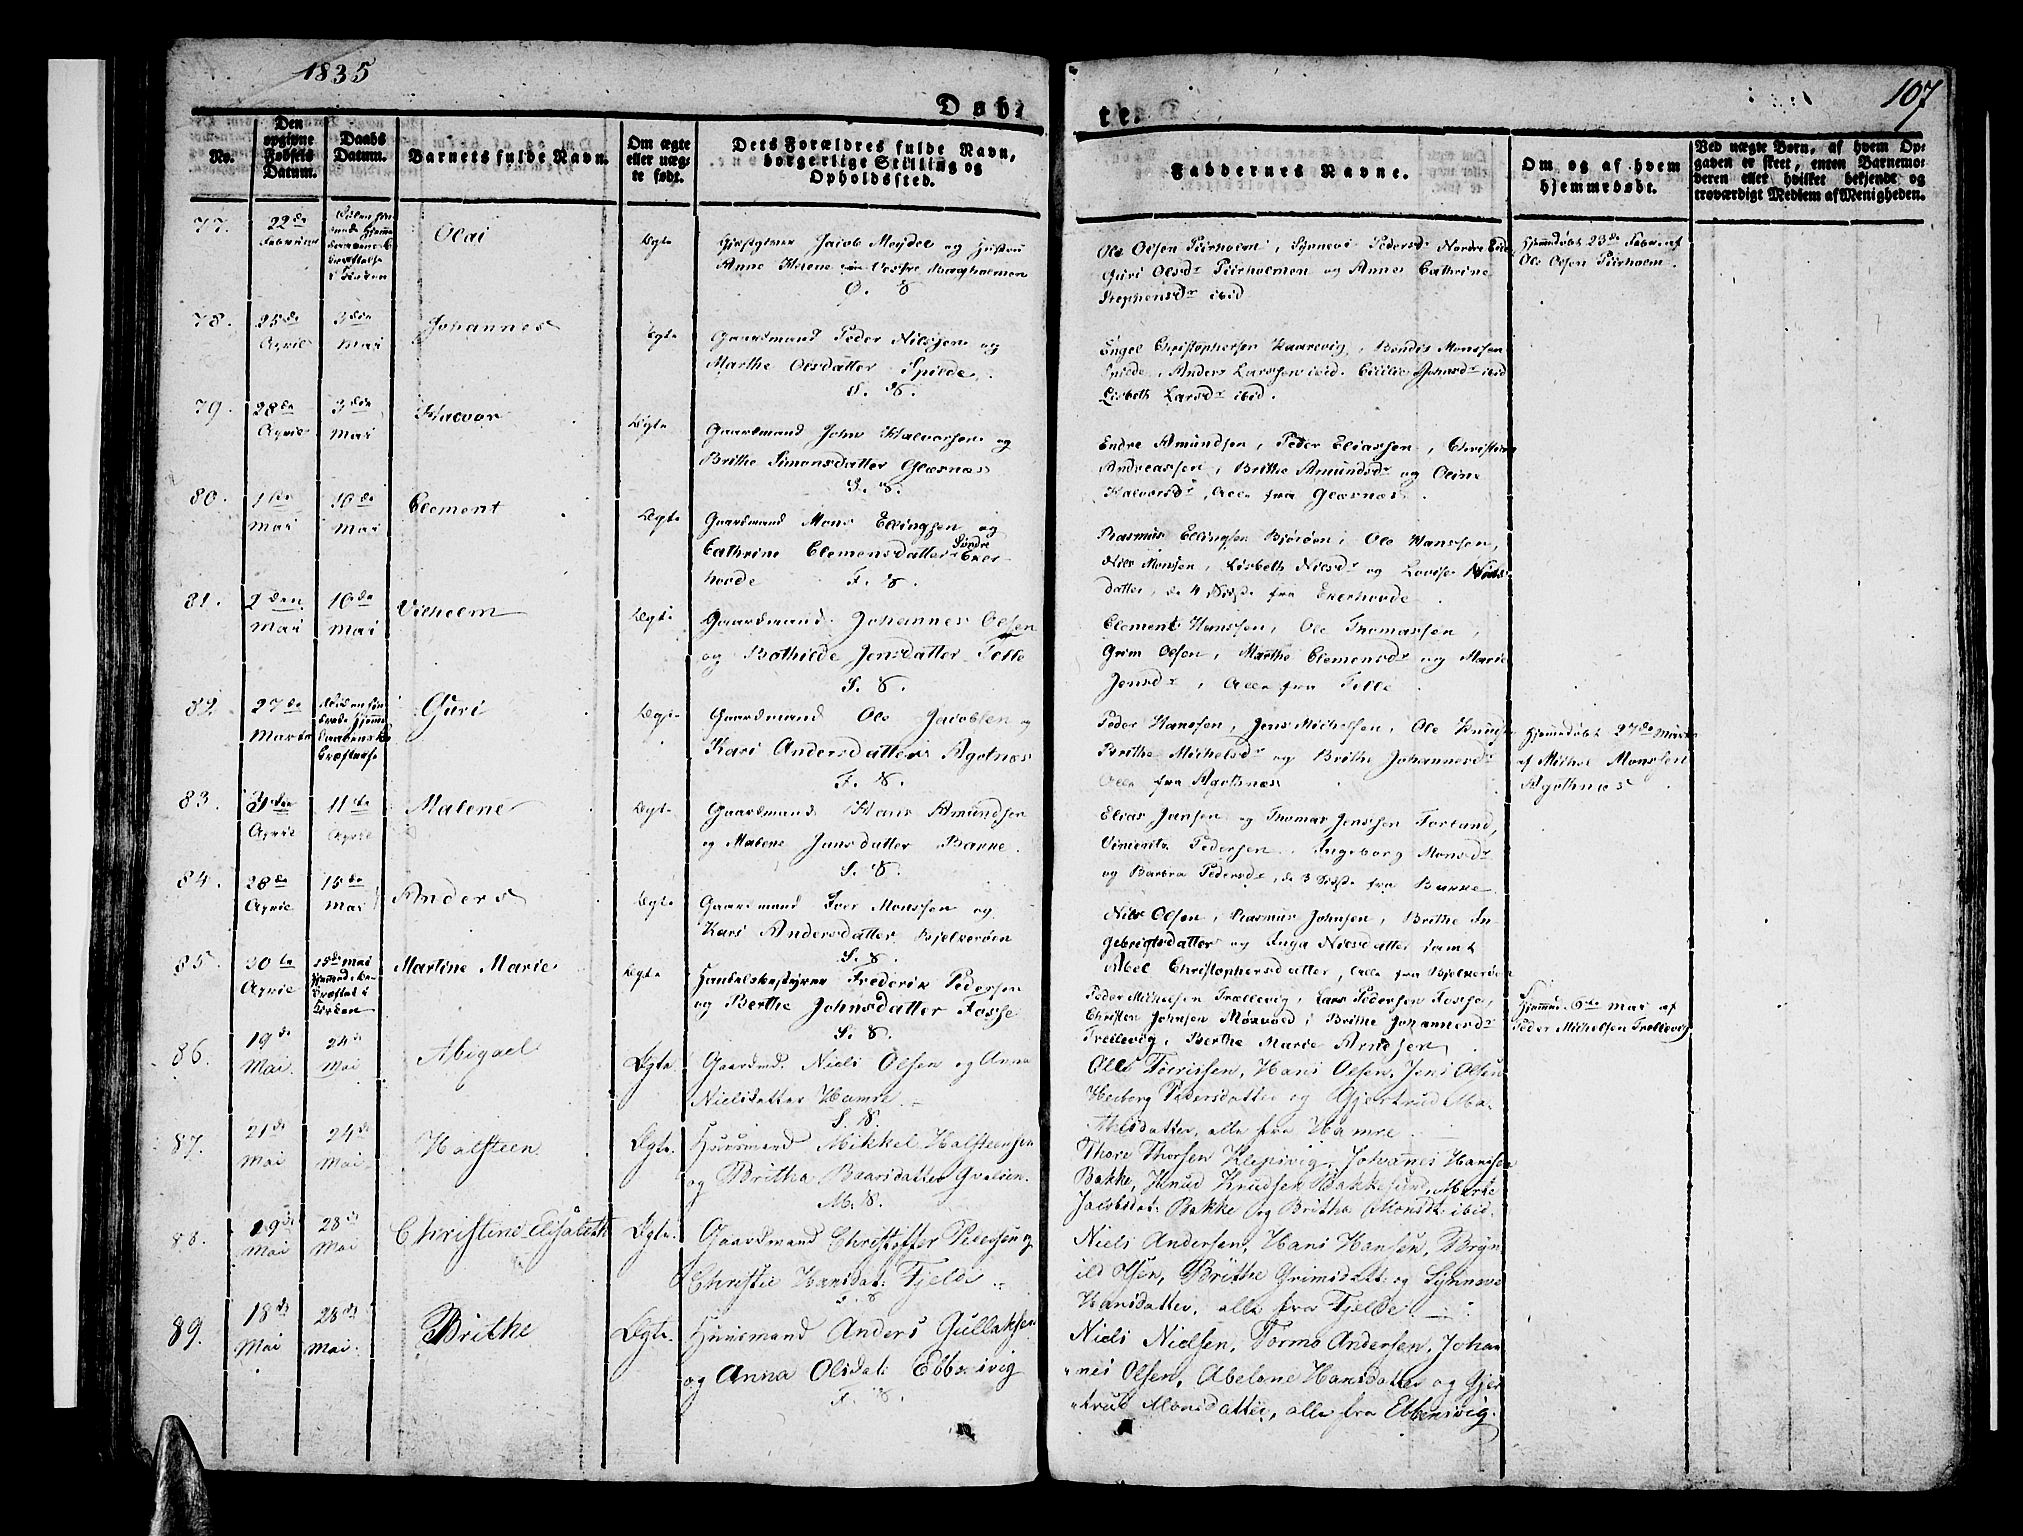 1835
107
Døbte.
No.
Den
opgivne
Fødsels
Datum.
Daabs
Datum.
Barnets fulde Navn.
Om ægte
eller uæg-
te født.
Dets Forældres fulde Navn,
borgerlige Stilling og
Opholdssted.
Faddernes Navne.
Om og af hvem
hjemmedøbt.
Ved uægte Børn, af hvem Op-
gaven er skeet, enten Barnemo-
deren eller hvilket bekjendt og
troværdigt Medlem af Menigheden.
77.
22de
Februar
i Kirken
Olai
Ægte
Gjæstgiver Jacob Meydel og Hustru
Anne Helene
Ole Olsen Teirholm, Synnevi Pedersdr Nordre
Guri Olsdr Teirholmen og Anne Cathrine
Stephensdr ibid
Hjemdøbt 23de Febr. af
Ole Olsen Teirholm.
78.
25de
April
3die
Mai
Johannes
Ægte
Gaardmand Peder Nilssen og
Marthe Olsdatter Spilde.
S. 8.
Engel Christophersen Kaarevig, Bendix Monssen
Spilde, Anders Larssen ibid. Cicilie Johnsdr ibid
Lisbeth Larsdr ibid.
79.
28de
April
3die
Mai
Halvor
Ægte
Gaardmand John Halvorsen og
Brithe Simonsdatter Glæsnæs
S. 8.
Endre Amundsen, Peder Eliassen, Christen
Andreassen, Brithe Amundsdr og Oline
Halvorsdr, Alle fra Glæsnæs.
80.
1ste
Mai
10de
Mai
Clement
Ægte
Gaardmand Mons Ellingsen og
Cathrine Clemensdatter Søndre Eker-
hovde F. 8.
Rasmus Ellingsen Bjørøen, Ole Hanssen,
Niels Monsen, Lisbeth Nielsdr og Lovise Niels-
datter, de 4 Sidste fra Ekerhovde.
81.
2den
Mai
10de
Mai
Vilhelm
Ægte
Gaardmand Johannes Olsen
og Bothilde Jensdatter Telle
S. 8.
Clement Hanssen, Ole Thomassen,
Grim Olsen, Marthe Clemensdr og Marie
Jensdr, Alle fra Telle.
82.
27de
Marts
Guri
Ægte
Gaardmand Ole Jacobsen og
Kari Andersdatter Agotnæs
F. 8.
Peder Hanssen, Jens Michelsen, Ole Knudsen
Brithe Michelsdr og Brithe Johannesdr
Alle fra Agotnæs
Hjemdøbt 27de Marts
af Michel Monssen
Agothnæs.
83.
April
11te
April
Malene
Ægte
Gaardmand Hans Amundsen
og Malene Jansdatter Bakke.
S. 8.
Elias Jansen og Thomas Jenssen Forland,
Vincents Pedersen, Ingeborg Monsdr
og Barbra Pedersdr, de 3 Sidste fra Bakke.
84.
28de
April
15de
Mai
Anders
Ægte
Gaardmand Iver Monssen og
Kari Andersdatter Bjelkerøen
S. 8.
Nils Olsen, Rasmus Johnsen, Brithe In-
gebrigtsdatter og Inga Nielsdatter samt
Abel Christophersdatter, Alle fra Bjelkerøen
85.
30te
April
25de Mai
i
Kirken
Martine Marie
Ægte
Handelsbestyrer Frederik Pedersen
og Berthe Johnsdatter Fosse
S. 8.
Peder Michelsen Trællevig, Lars Pedersen Fosse,
Christen Johnsen Møxvold, Brithe Johannesdr
Trellevig, Berthe Marie
Hjemmed. 6te Mai af
Peder Michelsen Trellevig
86.
19de
Mai.
24de
Mai
Abigael
Ægte.
Gaardmd. Niels Olsen og Anna
Nielsdatter Hamre.
S. 8.
Ole Toerissen, Hans Olsen, Jens Olsen
Herborg Pedersdatter og Gjertrud Ma-
thisdatter, alle fra Hamre.
87.
21de
Mai
24de
Mai.
Halsteen
Ægte.
Huusmand Mikkel Halsteensen
og Britha Baarsdatter
M. 8.
Thore Thorsen Klepsvig, Johannes Hansen
Bakke, Knud Knudsen Bakkesund, Marie
Jacobsdat: Bakke og Britha Monsdt: ibid.
88.
19de
Mai
28de
Mai
Christine Elisabeth
Ægte.
Gaardmand Christoffer Pedersen og
Christie Hansdat: Fjelde.
F. 8
Niels Andersen, Hans Hansen, Bryn-
ild Olsen, Brithe Grimsdatt: og Synneve
Hansdatter, alle fra Fjelde.
89.
18de
Mai
28de
Mai.
Brithe
Ægte.
Huusmand Anders Gullaksen
og Anna Olsdat: Ebbesvig
F. 8.
Niels Nielsen, Tormo Andersen, Johan-
nes Olsen, Abelone Hansdatter og Gjer-
trud Monsdatter, alle fra Ebbesvig.